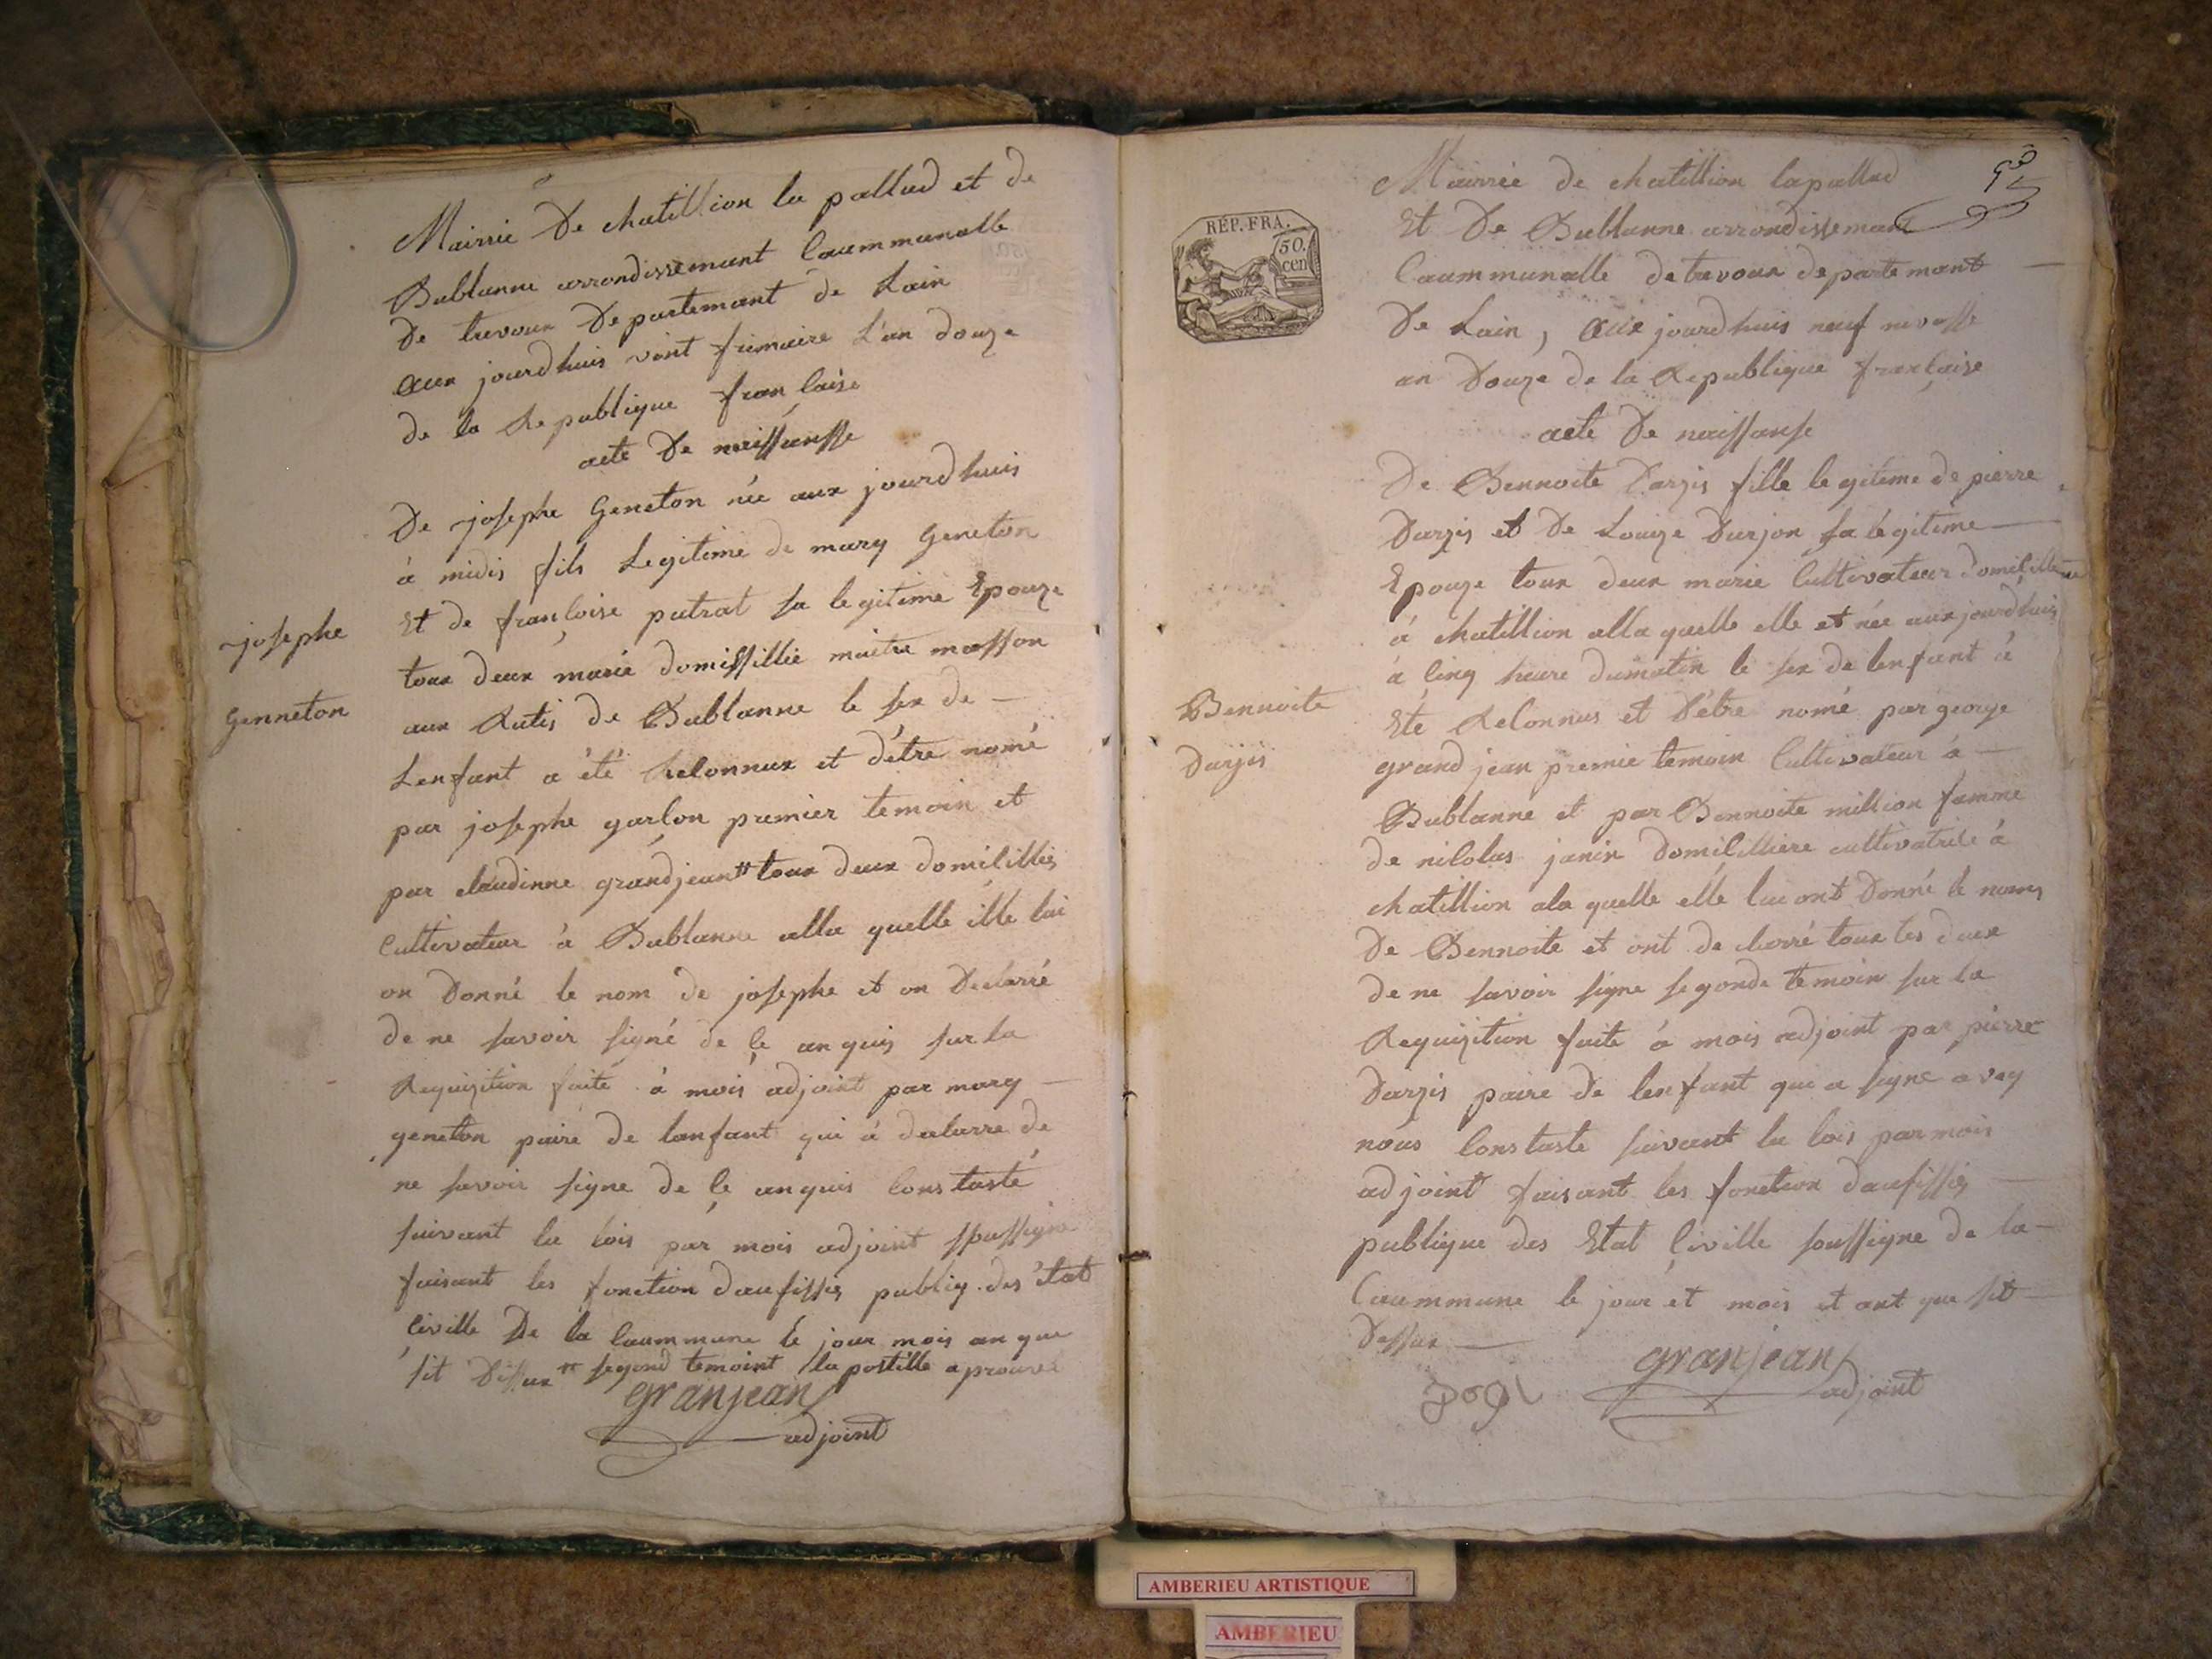 Mairrie De chatillion la pallud et de
Bublanne arrondissemant Caummunalle
De trevoux Departemant de Lain
aux jourdhuis vint frimaire L'an douze
de la Republique francaise
acte De naissansse
De josephe Geneton née aux jourdhuis
à midis fils Legitime de mary Geneton
Et de françoise patrat sa legitime Epouze
toux deux marie domissillié maitre masson
josephe
aux Rutis de Bublanne le sex de —
Genneton
Lenfant a été Reconnux et d'être nomé
par josephe garçon premier temoin et
par claudinne grandjean # toux deux domiciliés
Cultivateur à Bublanne alla quelle ille lui
on Donné le nom de josephe et on Declarré
de ne savoir signé de çe anquis sur la
Requizition faite à mois adjoint par mary —
geneton paire de lanfant qui à declarre de
ne savoir signe de çe anquis Constasté
suivant la lois par mois adjoint soussigne
faisant les fonction daufissies publiq. des état
çiville De la Caummune le jour mois an que
sit Dessux # segond temoint la postille aprouvé
granjean
adjoint
Mairrie de chatillion lapallud
RÉP. FRA.
50. cen
Et De Bublanne arrondissemant
Caummunalle de trevoux departemant —
De Lain, aux jourdhuis neuf nivosse
an Douze de la Republique francaise
acte De naissanse
De Bennoite Darzis fille legitime de pierre
Darzis et De Louize Darjon sa légitime —
Epouze toux deux marie Cultivateur
à chatillion alla quelle elle et née aux jourdhuis
à cinq heure dumatin le sex de lenfant à
Bennoite
Eté Reconnus et D'être nomé par george
Darjis
grand jean premie temoin Cultivateur à —
Bublanne et par Bennoite million famme
de nicolas janin Domicilliere cultivatrice à
chatillion ala quelle elle lui ont Donné le noms
De Bennoite et ont declarré toux les deux
de ne savoir signe segonde temoin sur la
Requizition faite à mois adjoint par pierre
Darzis paire De lenfant qui a signe avey
nous Constaste suivant la lois par mois
adjoint faisant les fonction daufissies —
publique des Etat çiville soussigne de la —
Caummune le jour et mois et ant que sit —
Dessux —
granjean
adjoint
AMBERIEU ARTISTIQUE
AMBERIEU